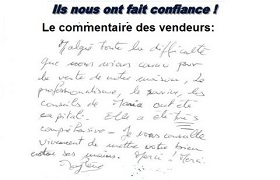 Ils nous ont fait confiance !
Le commentaire des vendeurs:
Malgré toute la difficulté
que nous avions connu pour
la vente de notre maison, le
professionnalisme, le sourire, les
conseils de Maria ont été
capital. Elle a été très
compréhensive - Je vous conseille
vivement de mettre votre bien
entre ses mains. Merci ! Merci